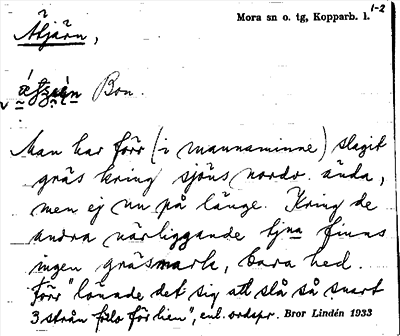 Mora sn o. tg, Kopparb. l. 1-2
Åtjärn,
Bon.
Man har förr (i mannaminne) slagit
gräs kring sjöns nordv. ända,
men ej nu på länge. Kring de
andra närliggande tjna finns
ingen gräsmark, bara hed.
Förr "lönade det sig att slå så snart
3 strån slo för lien", enl. ordspr. Bror Lindén 1933